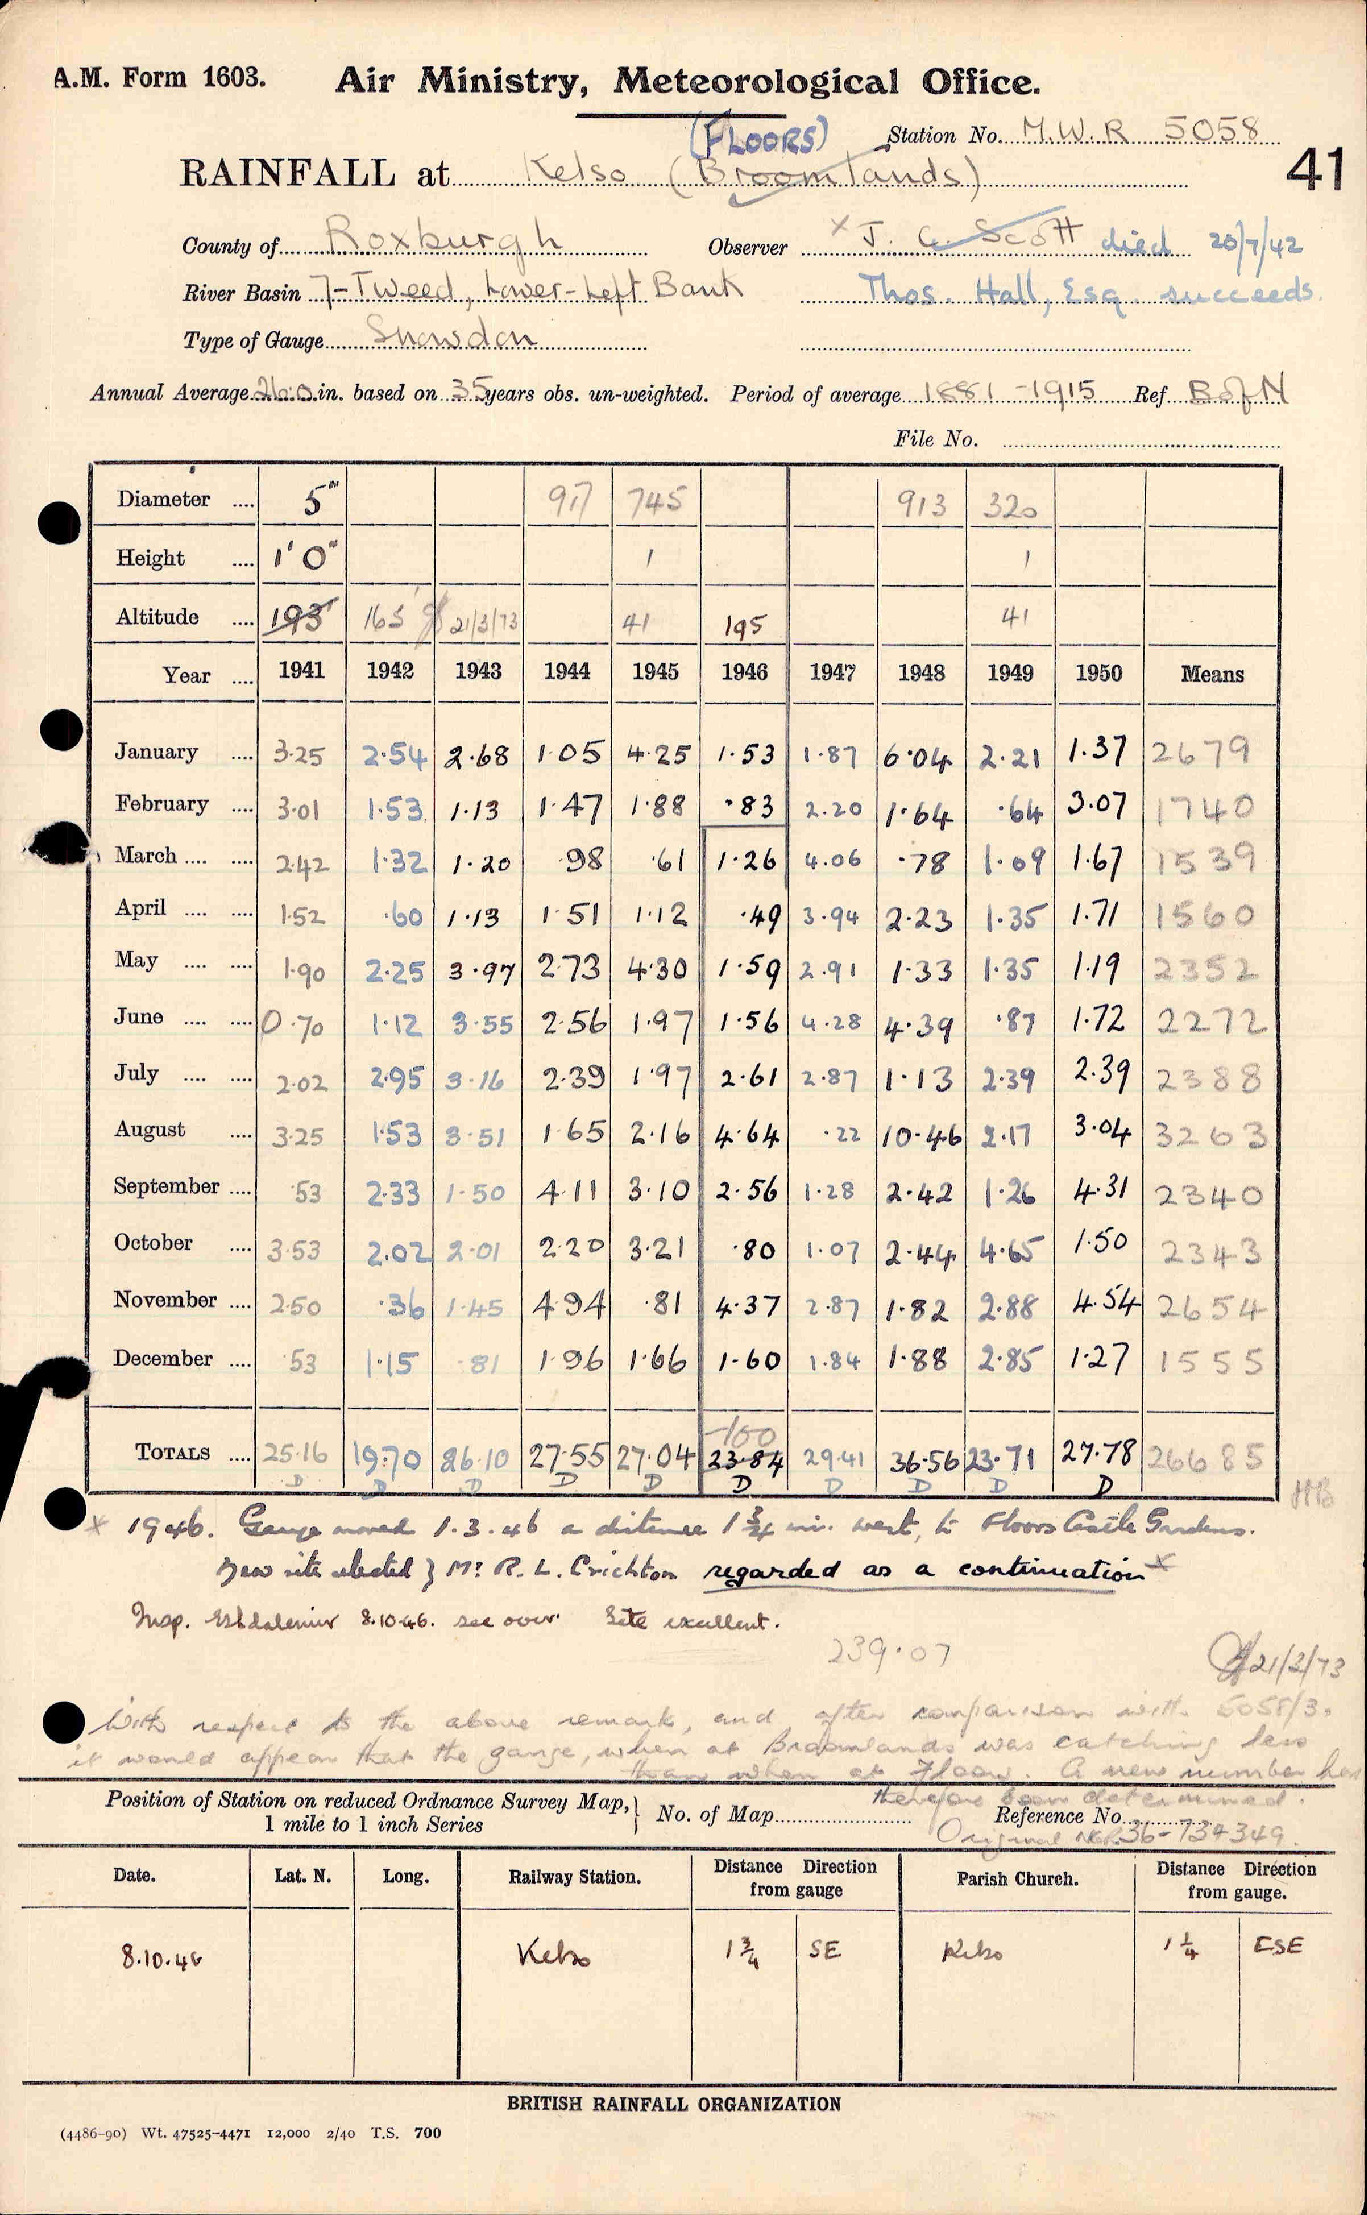 A.M. Form 1603. Air Ministry, Meteorological Office.
(FLOORS) Station No. M.W.R 5058
41
RAINFALL at Kelso (Broomlands)
County of Roxburgh Observer x J. C. Scott died 20/7/42
River Basin 7-Tweed, Lower-Left Bank Thos. Hall, Esq. succeeds.
Type of Gauge Snowdon
Annual Average 26.0 in. based on 35 years obs. un-weighted. Period of average 1881-1915 Ref B of N
File No.
Diameter .... 5" 917 745 913 320
Height .... 1' 0" 1 1
Altitude .... 193' 165' 21/3/73 41 195 41
Year .... 1941 1942 1943 1944 1945 1946 1947 1948 1949 1950 Means
January .... 3.25 2.54 2.68 1.05 4.25 1.53 1.87 6.04 2.21 1.37 2679
February .... 3.01 1.53 1.13 1.47 1.88 .83 2.20 1.64 .64 3.07 1740
March .... .... 2.42 1.32 1.20 .98 .61 1.26 4.06 .78 1.09 1.67 1539
April .... .... 1.52 .60 1.13 1.51 1.12 .49 3.94 2.23 1.35 1.71 1560
May .... .... 1.90 2.25 3.97 2.73 4.30 1.59 2.91 1.33 1.35 1.19 2352
June .... .... 0.70 1.12 3.55 2.56 1.97 1.56 4.28 4.39 .87 1.72 2272
July .... .... 2.02 2.95 3.16 2.39 1.97 2.61 2.87 1.13 2.39 2.39 2388
August .... 3.25 1.53 3.51 1.65 2.16 4.64 .22 10.46 2.17 3.04 3263
September .... .53 2.33 1.50 4.11 3.10 2.56 1.28 2.42 1.26 4.31 2340
October .... 3.53 2.02 2.01 2.20 3.21 .80 1.07 2.44 4.65 1.50 2343
November .... 2.50 .36 1.45 4.94 .81 4.37 2.87 1.82 2.88 4.54 2654
December .... .53 1.15 .81 1.96 1.66 1.60 1.84 1.88 2.85 1.27 1555
-100
TOTALS .... 25.16 19.70 26.10 27.55 27.04 23.84 29.41 36.56 23.71 27.78 26685
D D D D D D D D D D HB
x 1946. Gauge moved 1.3.46 a distance 1¾ mi. west, to Floors Castle Gardens.
New site elected } Mr R. L. Crichton regarded as a continuation x
Insp. Eskdalemuir 8.10.46. see over. Site excellent.
239.07
21/3/73
With respect to the above remark, and after comparison with 5058/3.
it would appear that the gauge, when at Broomlands was catching less
than when at Floors. A new number has
therefore been determined.
Position of Station on reduced Ordnance Survey Map, 1 mile to 1 inch Series } No. of Map Reference No.
Original NGR 36-734349
Date. Lat. N. Long. Railway Station. Distance Direction from gauge Parish Church. Distance Direction from gauge.
8.10.46 Kelso 1¾ SE Kelso 1¼ ESE
BRITISH RAINFALL ORGANIZATION
(4486-90) Wt. 47525-4471 12,000 2/40 T.S. 700